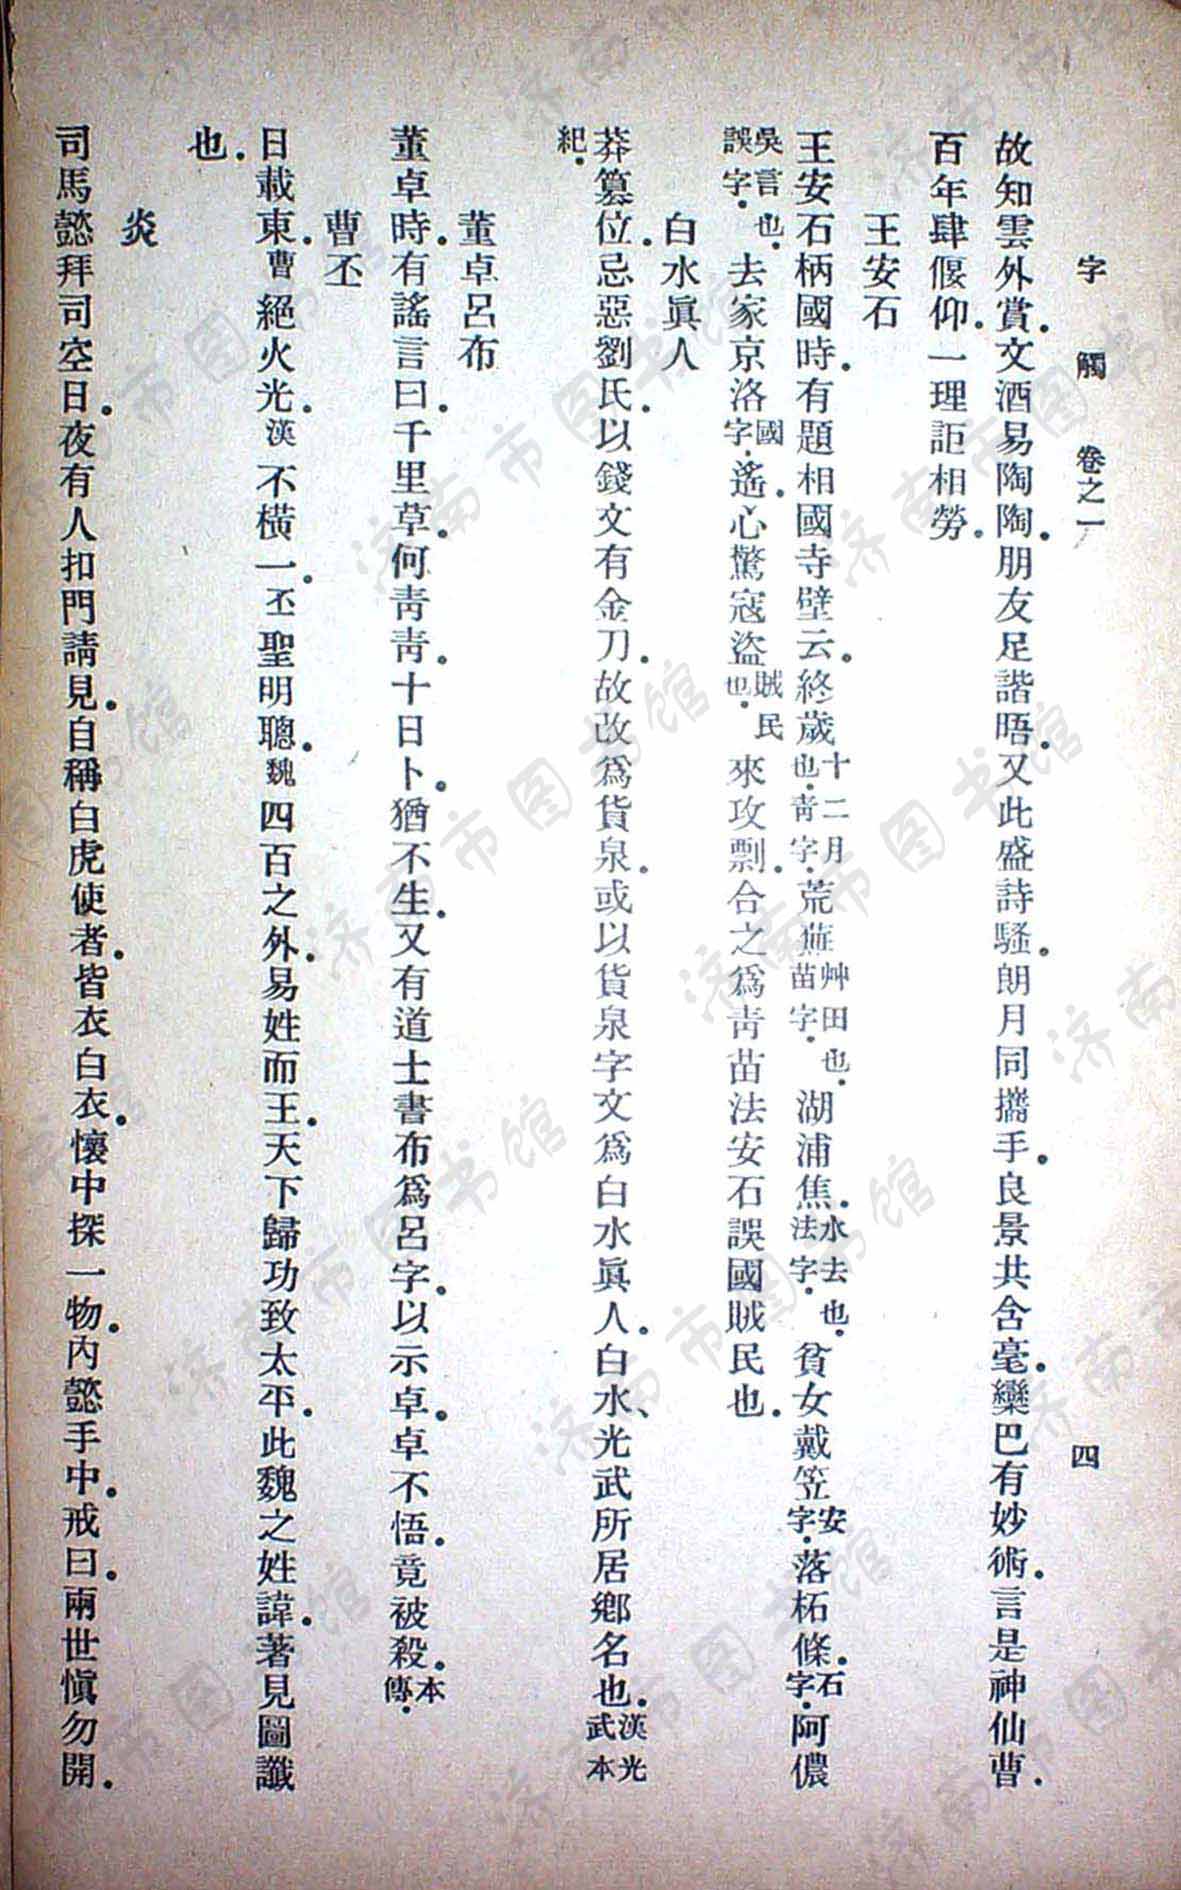 字觸 卷之一 四
故知雲外賞。文酒易陶陶。朋友足諧晤。又此盛詩騷。朗月同攜手。良景共含毫。欒巴有妙術。言是神仙曹。
百年肆偃仰。一理詎相勞。
王安石
王安石柄國時。有題相國寺壁云。終歲十二月也。青字。荒蕪艸田也。苗字。湖浦焦。水去也。法字。貧女戴笠安字。落柘條。石字。阿儂
吳言也。誤字。去家京洛國字。遙。心驚寇盜賊民也。來攻剽。合之爲青苗法安石誤國賊民也。
白水眞人
莽篡位。忌惡劉氏。以錢文有金刀。故改爲貨泉。或以貨泉字文爲白水眞人。白水、光武所居鄉名也。漢光武本
紀。
董卓呂布
董卓時。有謠言曰。千里草。何青青。十日卜。猶不生。又有道士書布爲呂字。以示卓。卓不悟。竟被殺。本傳。
曹丕
日載東。曹絕火光。漢不橫一。丕聖明聰。魏四百之外。易姓而王。天下歸功致太平。此魏之姓諱。著見圖讖
也。
炎
司馬懿拜司空日。夜有人扣門請見。自稱白虎使者。皆衣白衣。懷中探一物。內懿手中。戒曰。兩世愼勿開。
济南市图书馆